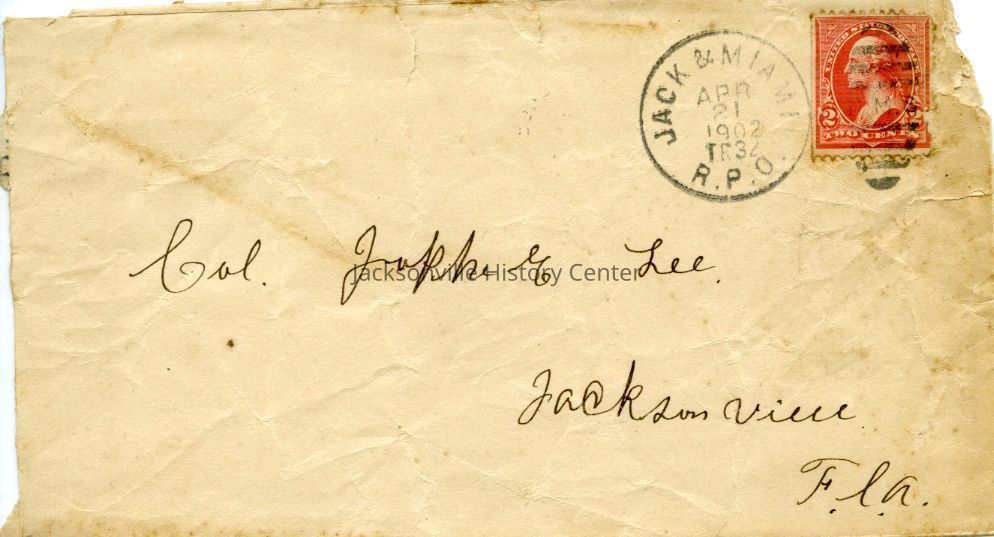 JACK & MIAMI
APR
21
1902
TR 32
R.P.O.
UNITED STATES
2
TWO CENTS
Col. Lee.
Jacksonville History Center
Jacksonville
F.l.a.